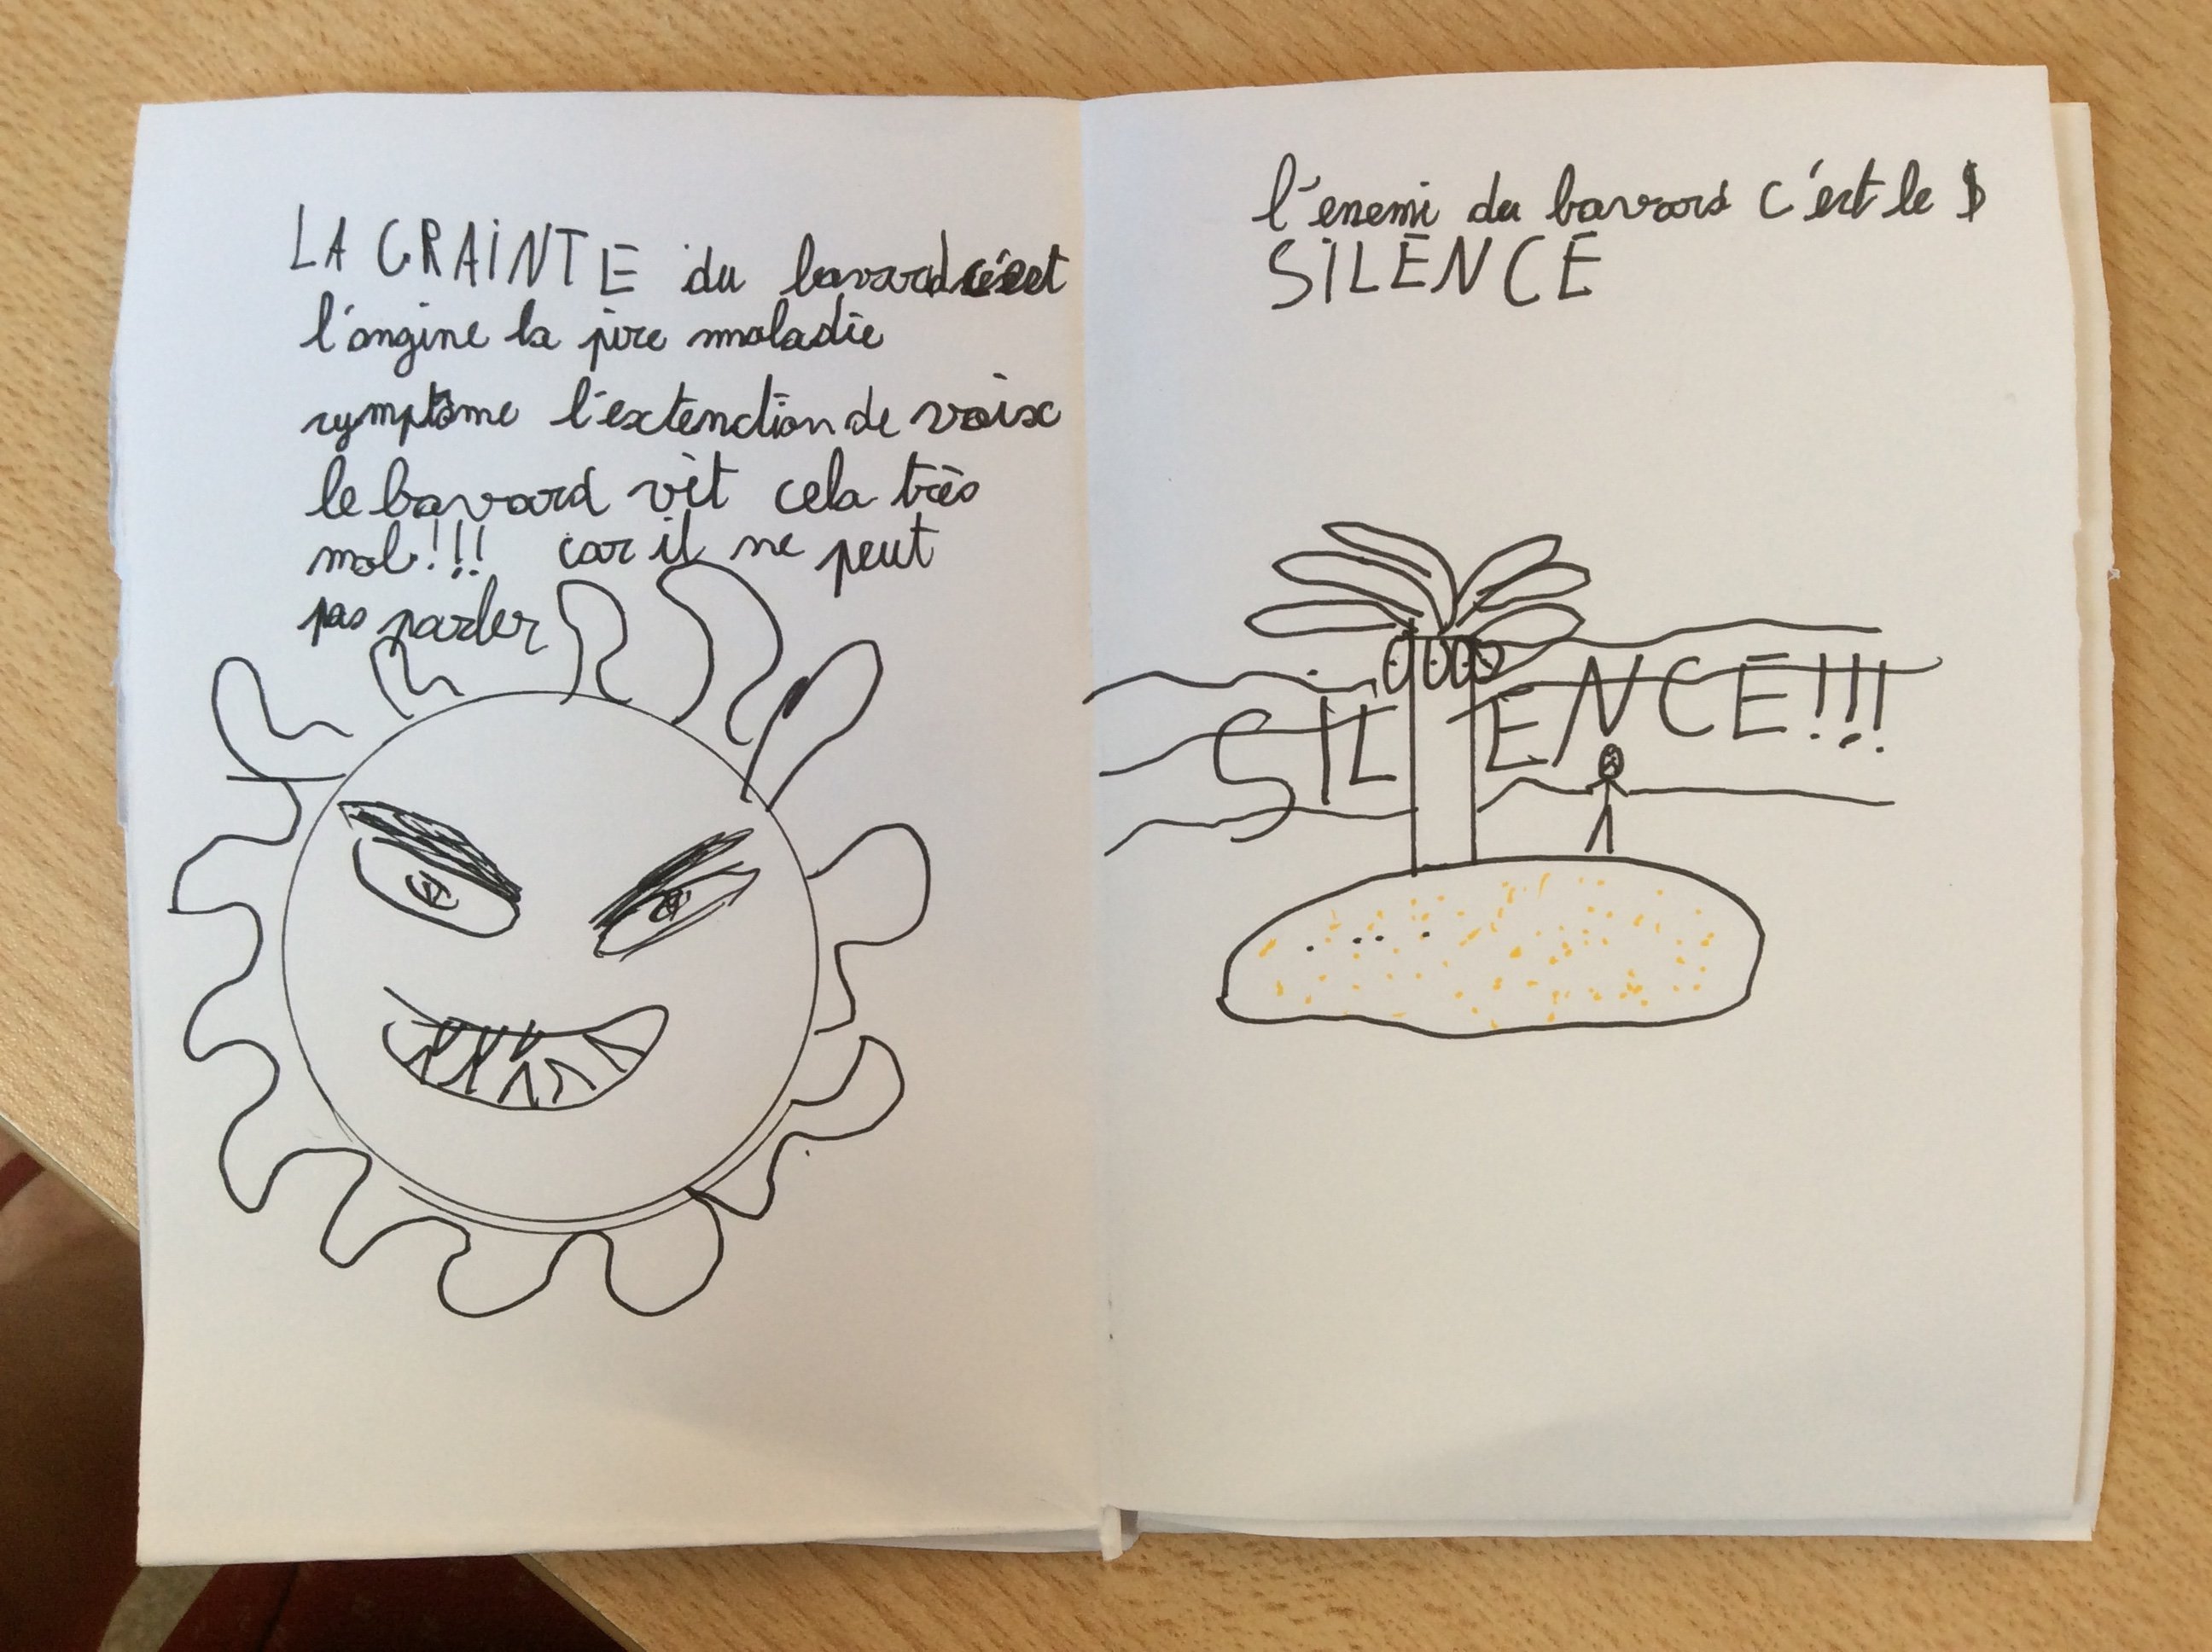 LA CRAINTE du bavard c'est
l'angine la pire maladie
symptôme l'extenction de voix
le bavard vit cela très
mal!!! car il ne peut
pas parler
l'enemi du bavard c'est le
SILENCE
SILENCE!!!